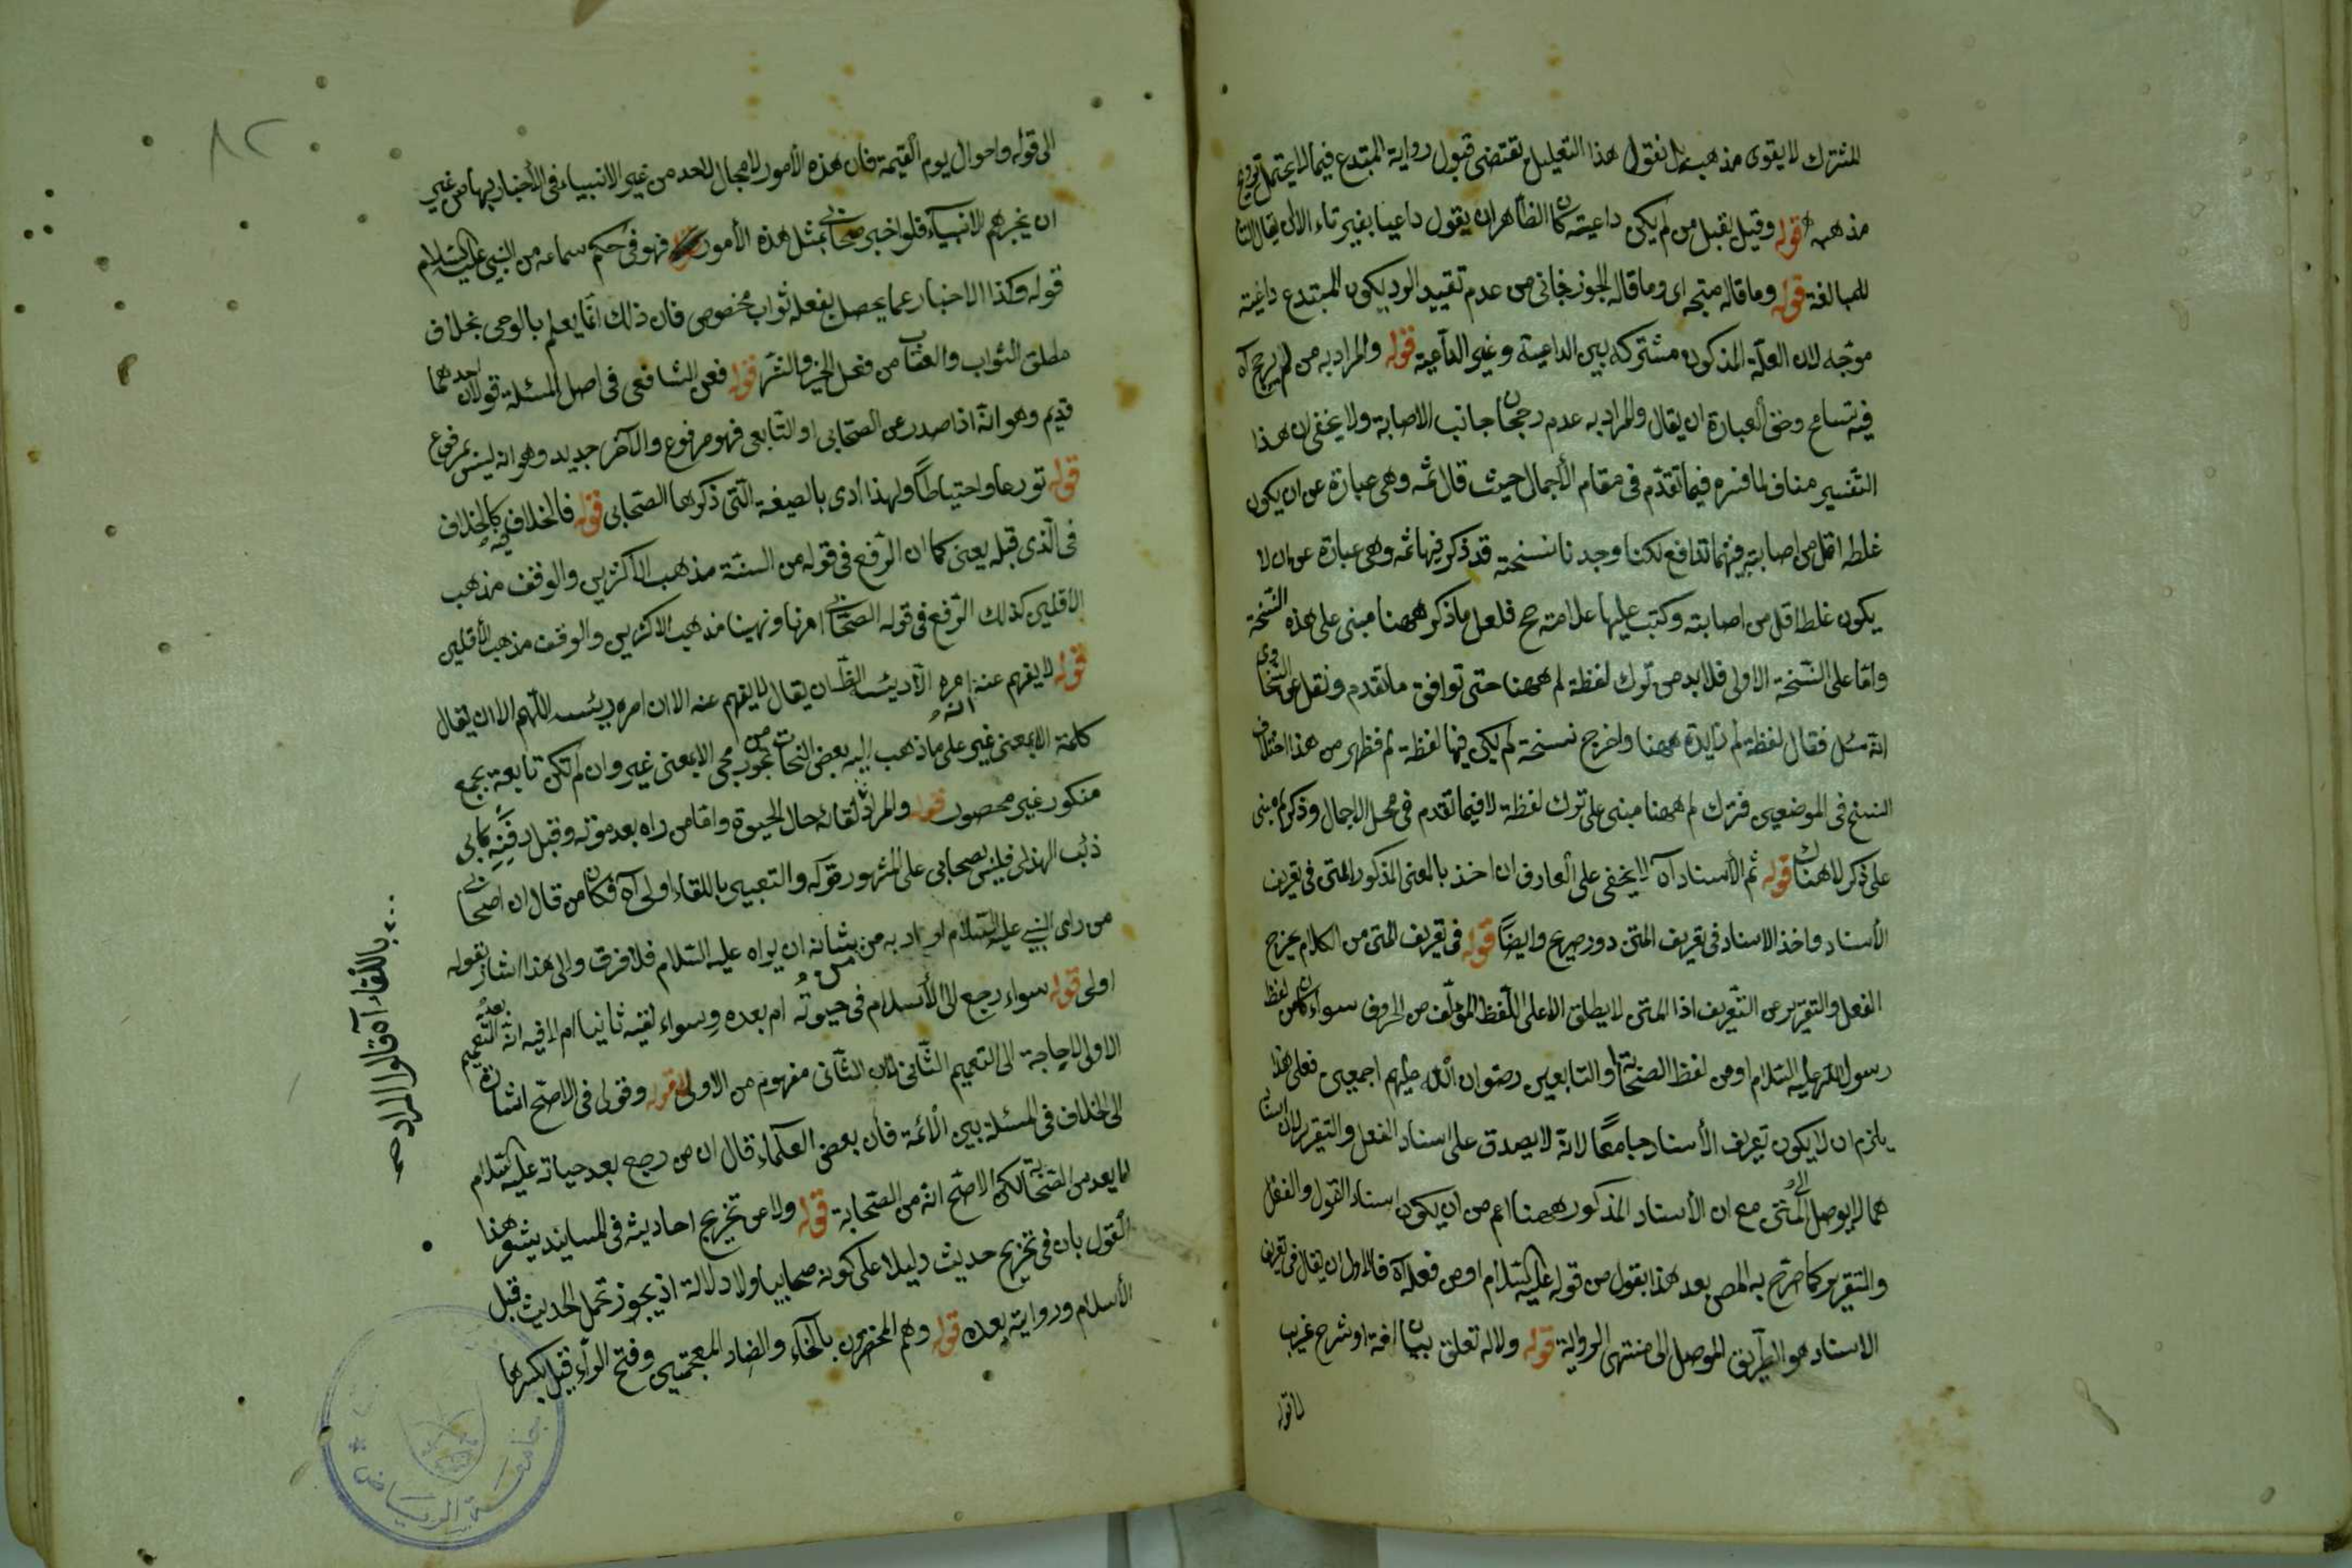 المشترك لا يقوى مذهبه بل نقول هذا التعليل تقتضى قبول رواية المبتدع فيما لا يحتمل ترويج
مذهبه قوله وقيل يقبل من لم يكن داعية كان الظاهر ان يقول داعيا بغير تاء الا ان يقال التا
للمبالغة قوله وما قاله متجه اى وما قاله الجوزجانى من عدم تقييد الرد بكون المبتدع داعية
موجه لان العلة المذكون مشتركه بين الداعية وغير الداعية قوله والمراد به من لم يرجح آه
فيه تسامح وحق العبارة ان يقال والمراد به عدم رجحان جانب الاصابة ولا يخفى ان هذا
التفسير مناف لما فسره فيما تقدم فى مقام الأجمال حيث قال ثمه وهى عبارة عن ان يكون
غلطه اقل من اصابته فبينهما تدافع لكنا وجدنا نسخة قد ذكر فيها ثمه وهى عبارة عن ان لا
يكون غلطه اقل من اصابته وكتب عليها علامة صح فلعل ما ذكر ههنا مبنى على هذه النسخة
واما على النسخة الاولى فلا بد من ترك لفظة لم ههنا حتى توافق ما تقدم ونقل عن السخاوى
انه سئل فقال لفظة لم زايدة ههنا واخرج نسخة لم يكن فيها لفظة لم فظهر من هذا اختلاف
النسخ فى الموضعين فترك لم ههنا مبنى على ترك لفظة لا فيما تقدم فى محل الاجمال وذكر لم مبنى
على ذكر لا هناك قوله ثم الأسناد آه لا يخفى على العارف ان اخذ بالمعنى المذكور المتن فى تعريف
الأسناد واخذ الاسناد فى تعريف المتن دور صريح وايضاً قوله فى تعريف المتن من الكلام يخرج
الفعل والتقرير عن التعريف اذا المتن لا يطلق الا على اللفظ المؤلف من الحروف سواء كان من لفظ
رسول الله عليه السلام او من لفظ الصحابة او التابعين رضوان الله عليهم اجمعين فعلى هذا
يلزم ان لا يكون تعريف الأسناد جامعًا لانه لا يصدق على اسناد الفعل والتقرير لان اسناد
هما لا يوصل الى المتن مع ان الأسناد المذكور ههنا اعم من ان يكون اسناد القول والفعل
والتقرير كما صرح به المص بعد هذا بقول من قوله عليه السلام او من فعله آه فالاولى ان يقال فى تعريف
الاسناد هو الطريق الموصل الى منتهى الرواية قوله ولا له تعلق ببيان لغة او شرح غريب
لا قوله
٨٢
الى قوله واحوال يوم القيمة فان هذه الأمور لا مجال لاحد من غير الانبياء فى الأخبار بها من غير
ان يخبرهم الانبياء فلو اخبر صحابى بمثل هذه الأمور فهو فى حكم سماعه من النبى عليه السلام
قوله وكذا الاخبار عما يحصل بفعله ثواب مخصوص فان ذلك انما يعلم بالوحى بخلاف
مطلق الثواب والعقاب من فعل الخير والشر قوله فعن الشافعى فى اصل المسئلة قولان احدهما
قديم وهو انه اذا صدر عن الصحابى او التابعى فهو مرفوع والآخر جديد وهو انه ليس بمرفوع
قوله تورعا واحتياطاً ولهذا أدى بالصيغة التى ذكرها الصحابى قوله فالخلاف فيه كالخلاف
فى الذى قبله يعنى كما ان الرفع فى قوله من السنة مذهب الاكثرين والوقف مذهب
الأقلين كذلك الرفع فى قوله الصحابى امرنا ونهينا مذهب الاكثرين والوقف مذهب الأقلين
قوله لا يفهم عنه ان امره الا رئيسه الظ ان يقال لا يفهم عنه الا ان امره رئيسه اللهم الا ان يقال
كلمة الا بمعنى غير على ما ذهب اليه بعض النحات من تجويز مجئ الا بمعنى غير وان لم تكن تابعة بجمع
منكور غير محصور قوله والمراد لقائه حال الحيوة واما من راه بعد موته وقبل دفنه كابى
ذئب الهذلى فليس بصحابى على المشهور قوله والتعبير باللقاء اولى آه فكان من قال ان الصحابى
من راى النبى عليه السلام اراد به من بشانه ان يراه عليه السلام فلا فرق والى هذا اشار بقوله
اولى قوله سواء رجع الى الأسلام فى حيوته ام بعده وسواء لقيه ثانيا ام لا فيه انه بعد التعميم
الاولى لا حاجة الى التعميم الثانى لان الثانى مفهوم من الاولى قوله وقولى فى الاصح اشارة
الى الخلاف فى المسئلة بين الأئمة فأن بعض العلماء قال ان من رجع بعد حياته عليه السلام
لا يعد من الصحابة لكن الاصح انه من الصحابة قوله ولا عن تخريج احاديثه فى المسانيد يشعر هذا
القول بان فى تخريج حديث دليلا على كونه صحابيا ولا دلالة اذ يجوز تحمل الحديث قبل
الأسلام وروايته بعده قوله وهم المخضرمون بالخاء والضاد المعجمتين وفتح الراء قيل بكسرها
باللقاء آه قالوا المراد صح
جامعة الرياض